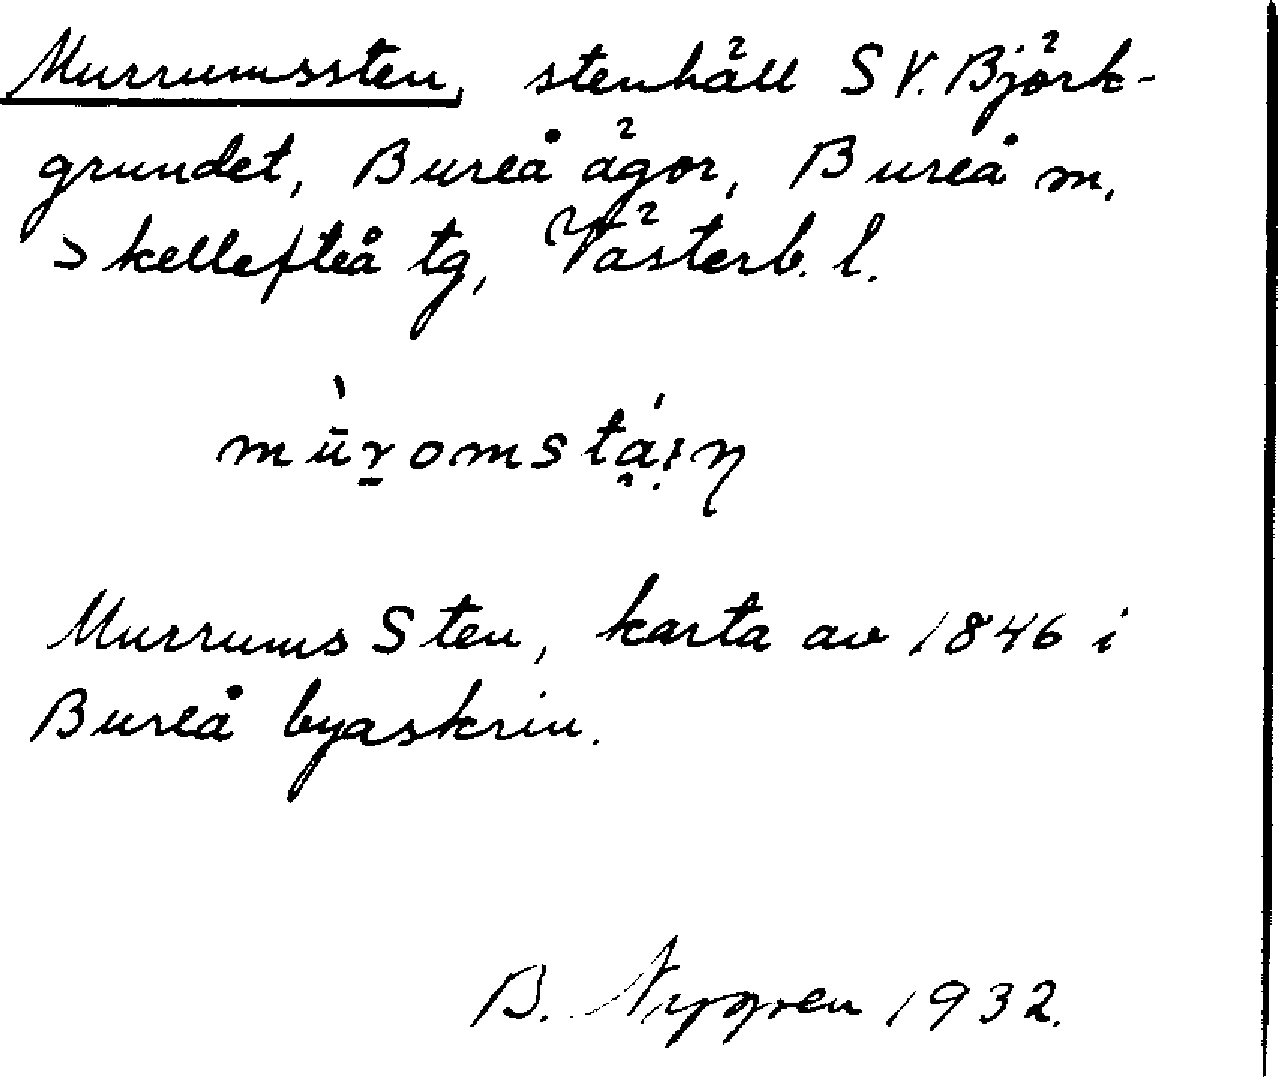 Murrumssten, stenhäll SV. Björk-
grundet, Bureå ägor, Bureå sn,
Skellefteå tg, Västerb. l.
mùromstáin
Murrums Sten, karta av 1846 i
Bureå byaskrin.
B. Nygren 1932.